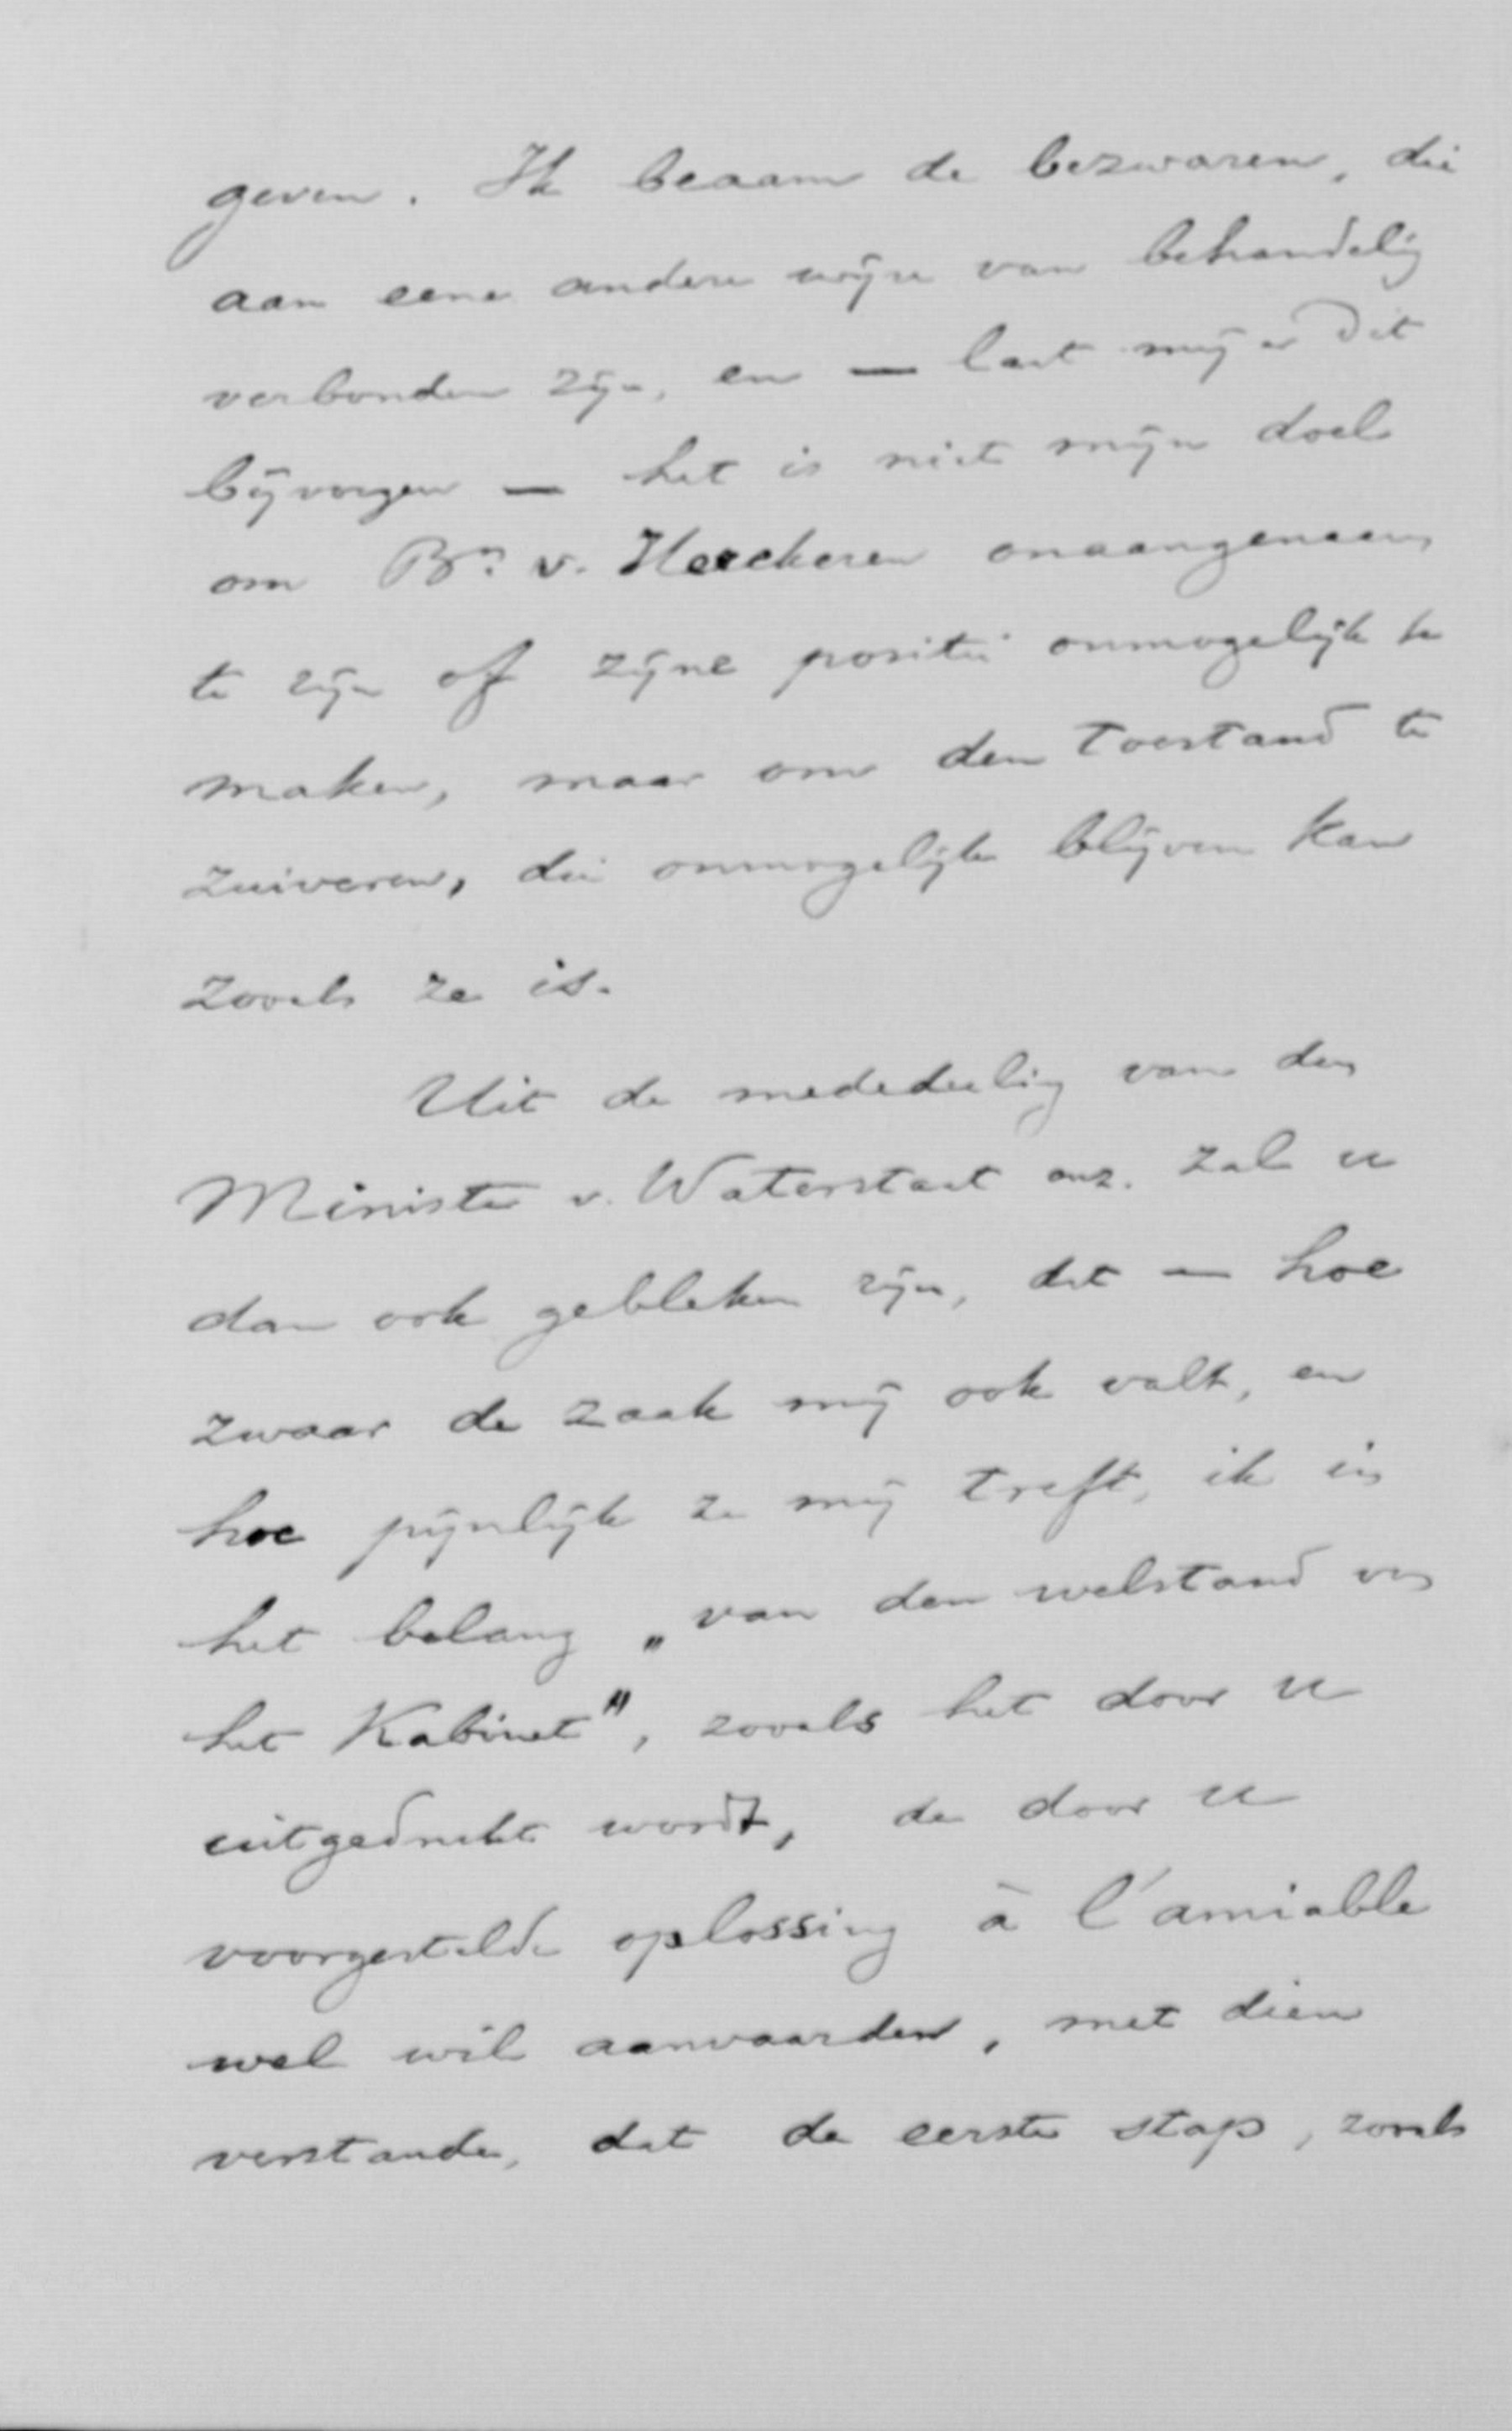 geven. Ik beaam de bezwaren, die
aan eene andere wijze van behandelig
verbonden zijn, en — laat mij er dit
bijvoegen — het is niet mijn doel
om Bn. v. Heeckeren onaangenaam
te zijn of zijne positie onmogelijk te
maken, maar om den toestand te
zuiveren, die onmogelijk blijven kan
zooals ze is.
Uit de mededeelig van den
Minister v. Waterstaat enz. zal u
dan ook gebleken zijn, dat — hoe
zwaar de zaak mij ook valt, en
hoe pijnlijk ze mij treft, ik in
het belang „van den welstand van
het Kabinet", zooals het door u
uitgedrukt wordt, de door u
voorgestelde oplossing à l'amiable
wel wil aanvaarden, met dien
verstande, dat de eerste stap, zooals